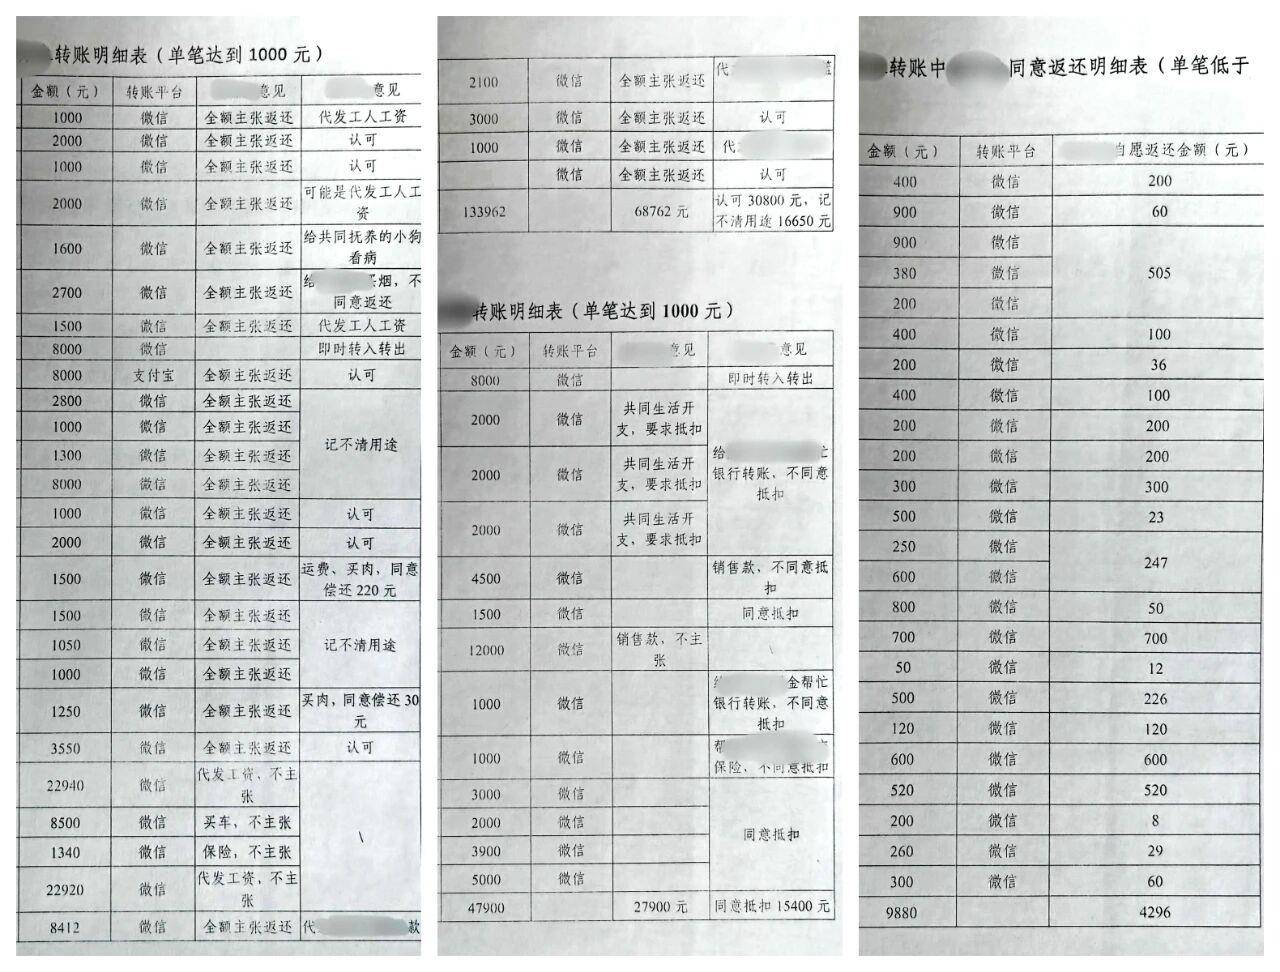 转账明细表（单笔达到 1000 元）
金额（元） 转账平台 意见 意见
1000 微信 全额主张返还 代发工人工资
2000 微信 全额主张返还 认可
1000 微信 全额主张返还 认可
2000 微信 全额主张返还 可能是代发工人工
资
1600 微信 全额主张返还 给共同抚养的小狗
看病
2700 微信 全额主张返还 给 买烟，不
同意返还
1500 微信 全额主张返还 代发工人工资
8000 微信 即时转入转出
8000 支付宝 全额主张返还 认可
2800 微信 全额主张返还
1000 微信 全额主张返还
记不清用途
1300 微信 全额主张返还
8000 微信 全额主张返还
1000 微信 全额主张返还 认可
2000 微信 全额主张返还 认可
1500 微信 全额主张返还 运费、买肉，同意
偿还 220 元
1500 微信 全额主张返还
1050 微信 全额主张返还 记不清用途
1000 微信 全额主张返还
1250 微信 全额主张返还 买肉，同意偿还 30
元
3550 微信 全额主张返还 认可
22940 微信 代发工资，不主
张
8500 微信 买车，不主张 \
1340 微信 保险，不主张
22920 微信 代发工资，不主
张
8412 微信 全额主张返还 代 款
2100 微信 全额主张返还 代
3000 微信 全额主张返还 认可
1000 微信 全额主张返还 代
微信 全额主张返还 认可
133962 68762 元 认可 30800 元，记
不清用途 16650 元
转账明细表（单笔达到 1000 元）
金额（元） 转账平台 意见 意见
8000 微信 即时转入转出
2000 微信 共同生活开
支，要求抵扣
2000 微信 共同生活开
支，要求抵扣
给 忙
银行转账，不同意
抵扣
2000 微信 共同生活开
支，要求抵扣
4500 微信 销售款，不同意抵
扣
1500 微信 同意抵扣
12000 微信 销售款，不主
张 \
1000 微信 金帮忙
银行转账，不同意
抵扣
1000 微信 帮
保险，不同意抵扣
3000 微信
2000 微信
同意抵扣
3900 微信
5000 微信
47900 27900 元 同意抵扣 15400 元
转账中 同意返还明细表（单笔低于
金额（元） 转账平台 自愿返还金额（元）
400 微信 200
900 微信 60
900 微信
380 微信 505
200 微信
400 微信 100
200 微信 36
400 微信 100
200 微信 200
200 微信 200
300 微信 300
500 微信 23
250 微信
247
600 微信
800 微信 50
700 微信 700
50 微信 12
500 微信 226
120 微信 120
600 微信 600
520 微信 520
200 微信 8
260 微信 29
300 微信 60
9880 4296